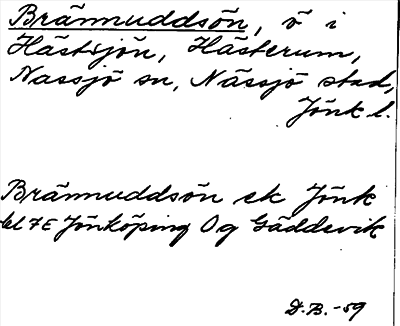 Brännuddsön, ö i
Hästsjön, Hästerum,
Nässjö sn, Nässjö stad,
Jönk l.
Brännuddsön ek Jönk
bl 7E Jönköping Og Gäddevik
D.B. -59